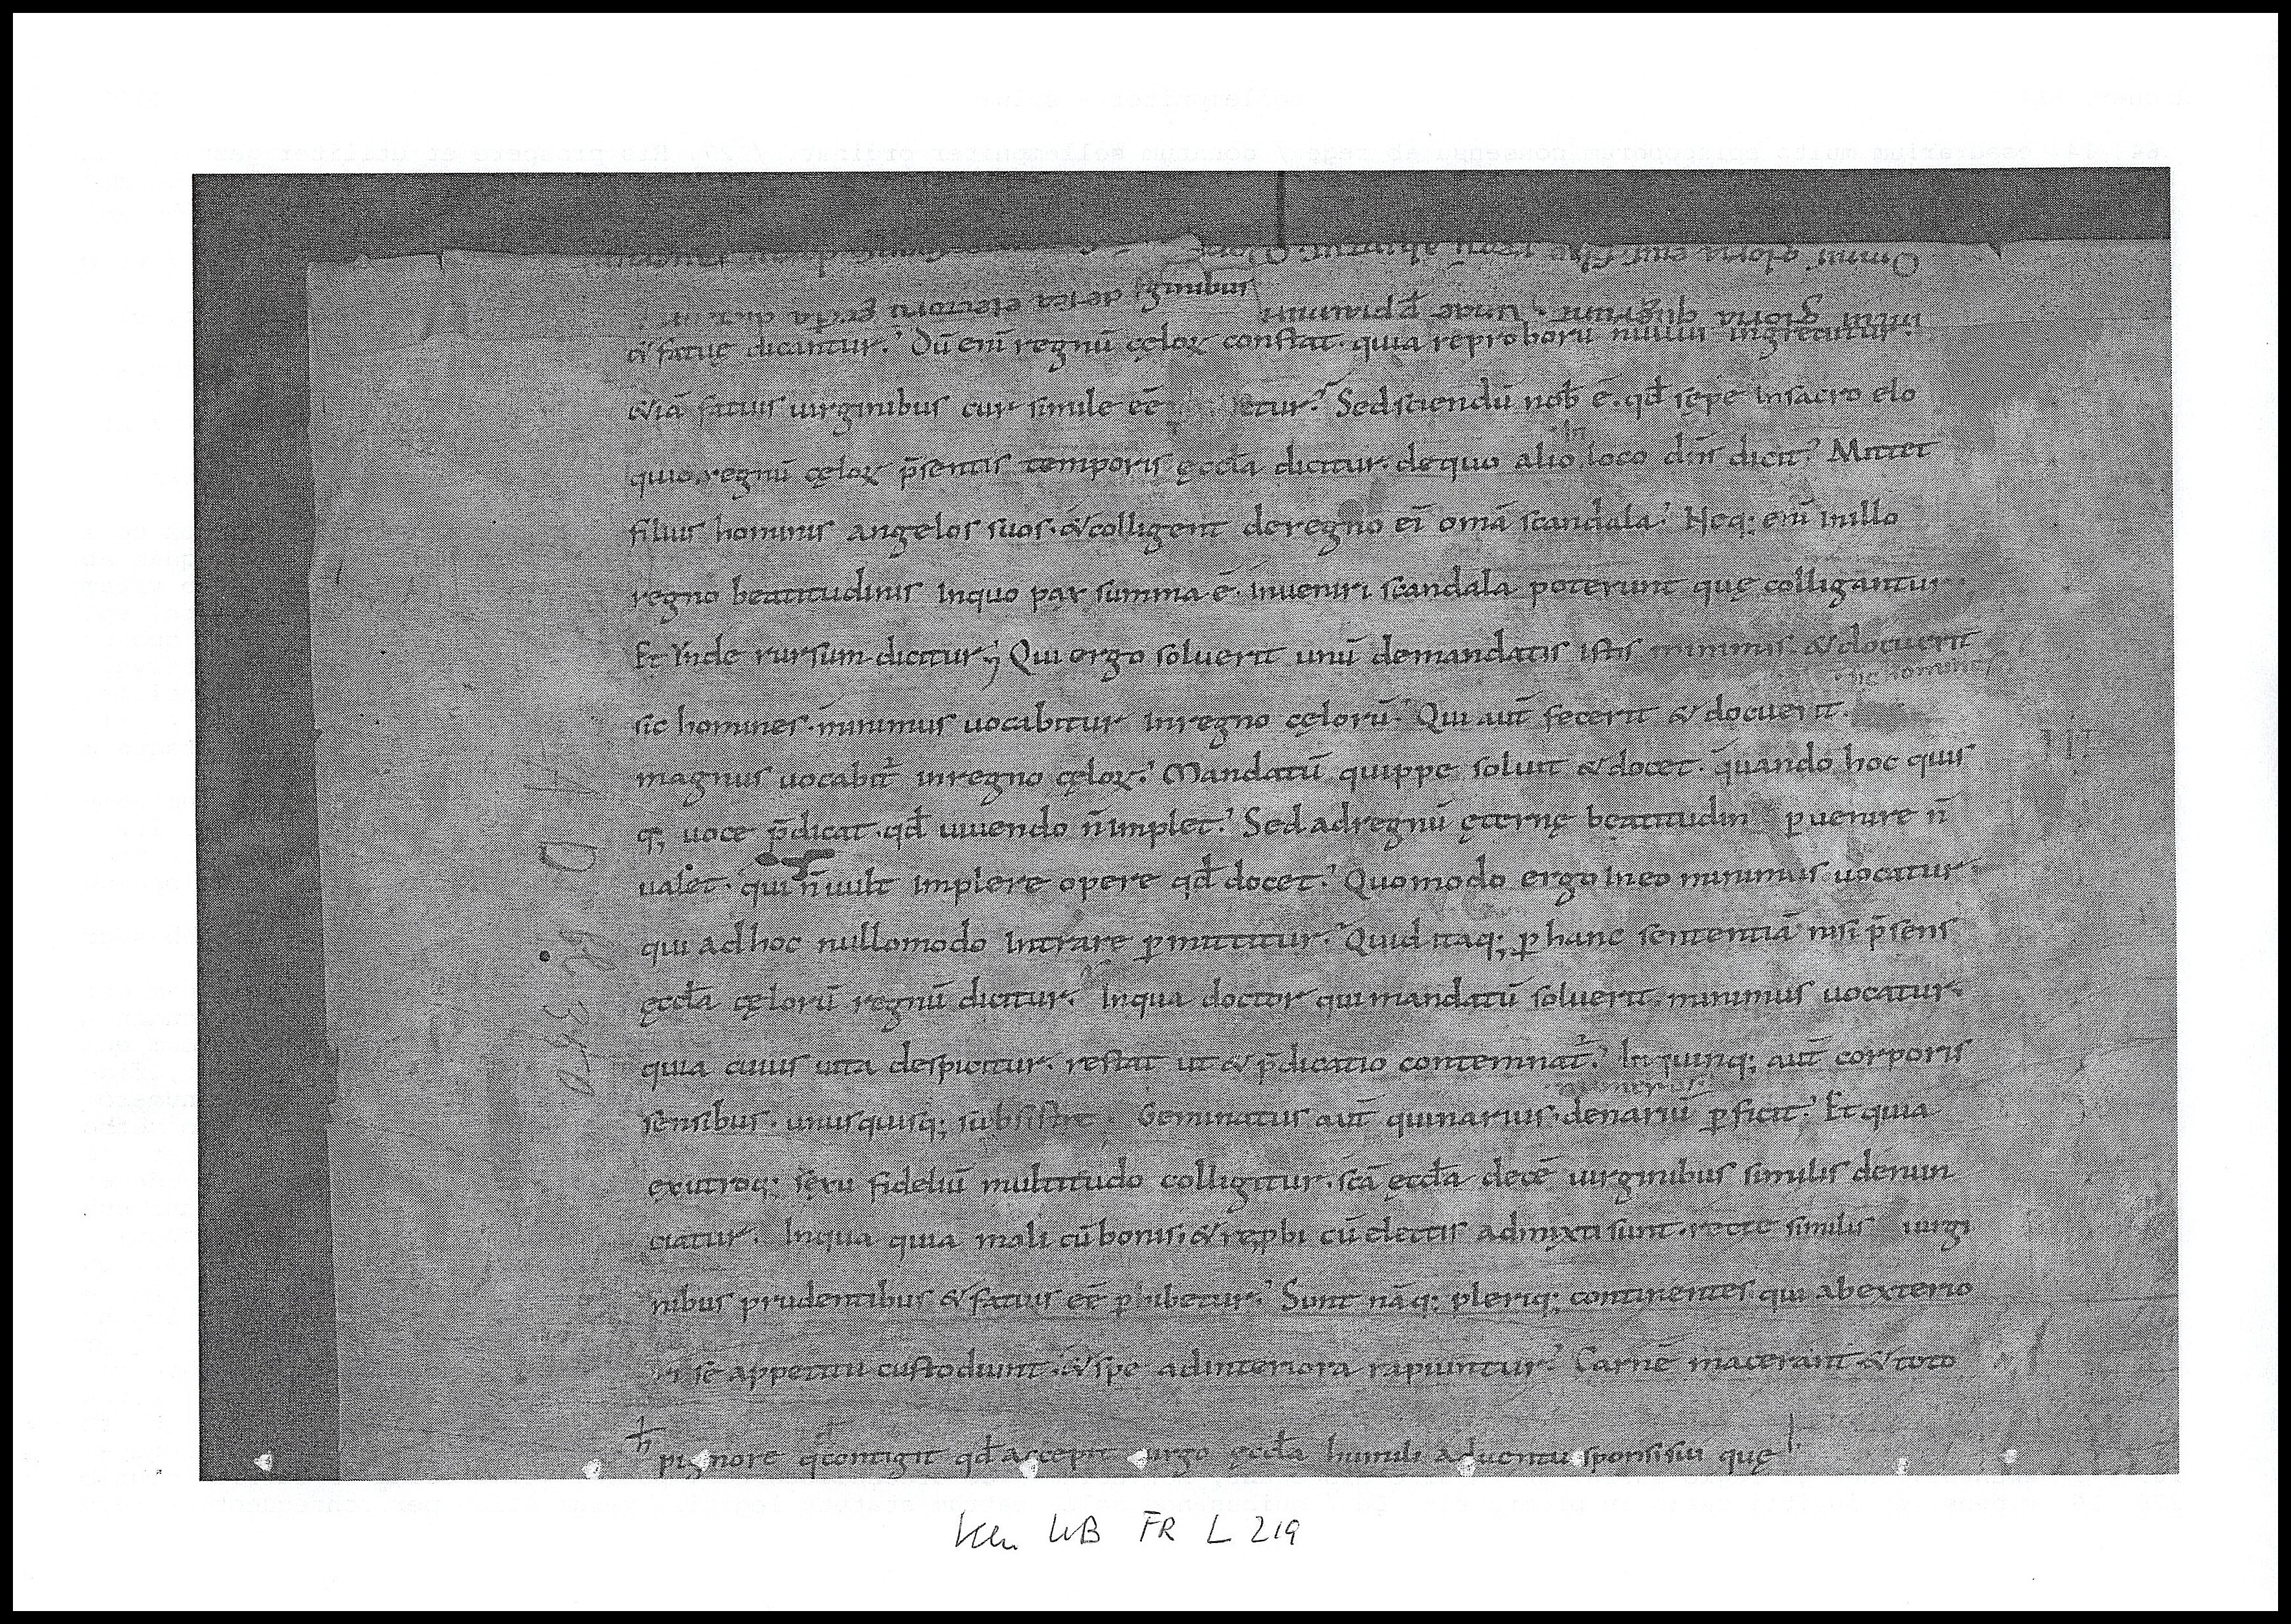 ci fatuę dicantur. Dū enī regnū cęloꝝ constat. quia reproborū nullus ingreditur
&iā fatuis uirginibus cur simile eē etur? Sed sciendū nob̄ ē. qđ sępe in sacro elo
quio. regnū cęloꝝ p̄sentis temporis ęccła dicitur. de quo alio in loco dn̄s dicit. Mittet
filius hominis angelos suos. & colligent de regno ei omā scandala. Neq; enī in illo
regno beatitudinis In quo pax summa ē. inueniri scandala poterunt quę colligantur.
Et Ynde rursum dicitur; Qui ergo soluerit unū de mandatis istis minimis & docuerit
sic homines
sic homines. minimus uocabitur In regno cęlorū. Qui aut̄ fecerit & docuerit.
magnus uocabit in regno cęloꝝ. Mandatū quippe soluit & docet. quando hoc quis
q; uoce p̄dicat. qđ uiuendo n̄ implet. Sed ad regnū ęternę beatitudin puenire n̄
ualet. qui n̄ uult implere opere qđ docet. Quomodo ergo In eo minimus uocatur.
qui ad hoc nullomodo Intrare pmittitur. Quid itaq; p hanc sententiā nisi p̄sens
ęccła cęlorū regnū dicitur. In qua doctor qui mandatū soluerit. minimus uocatur.
quia cuius uita despicitur. restat ut & p̄dicatio contemnat. In quinq; aut̄ corporis
numerus
sensibus. unusquisq; subsistit. Geminatus aut̄ quinarius. denariū pficit. Et quia
ex utroq; sexu fideliū multitudo colligitur. scā ęccła decē uirginibus similis denun
ciatur. In qua quia mali cū bonis. & repbi cū electis admixti sunt. recte similis uirgi
nibus prudentibus & fatuis eē phibetur. Sunt nāq; pleriq; continentes qui ab exterio
ri se appetitu custodiunt. & spe ad interiora rapiuntur. Carnē macerant & toto
h pignore q contigit qđ accepit uirgo ęccła humili aduentu sponsi sui quę
Kln WB FR L 219